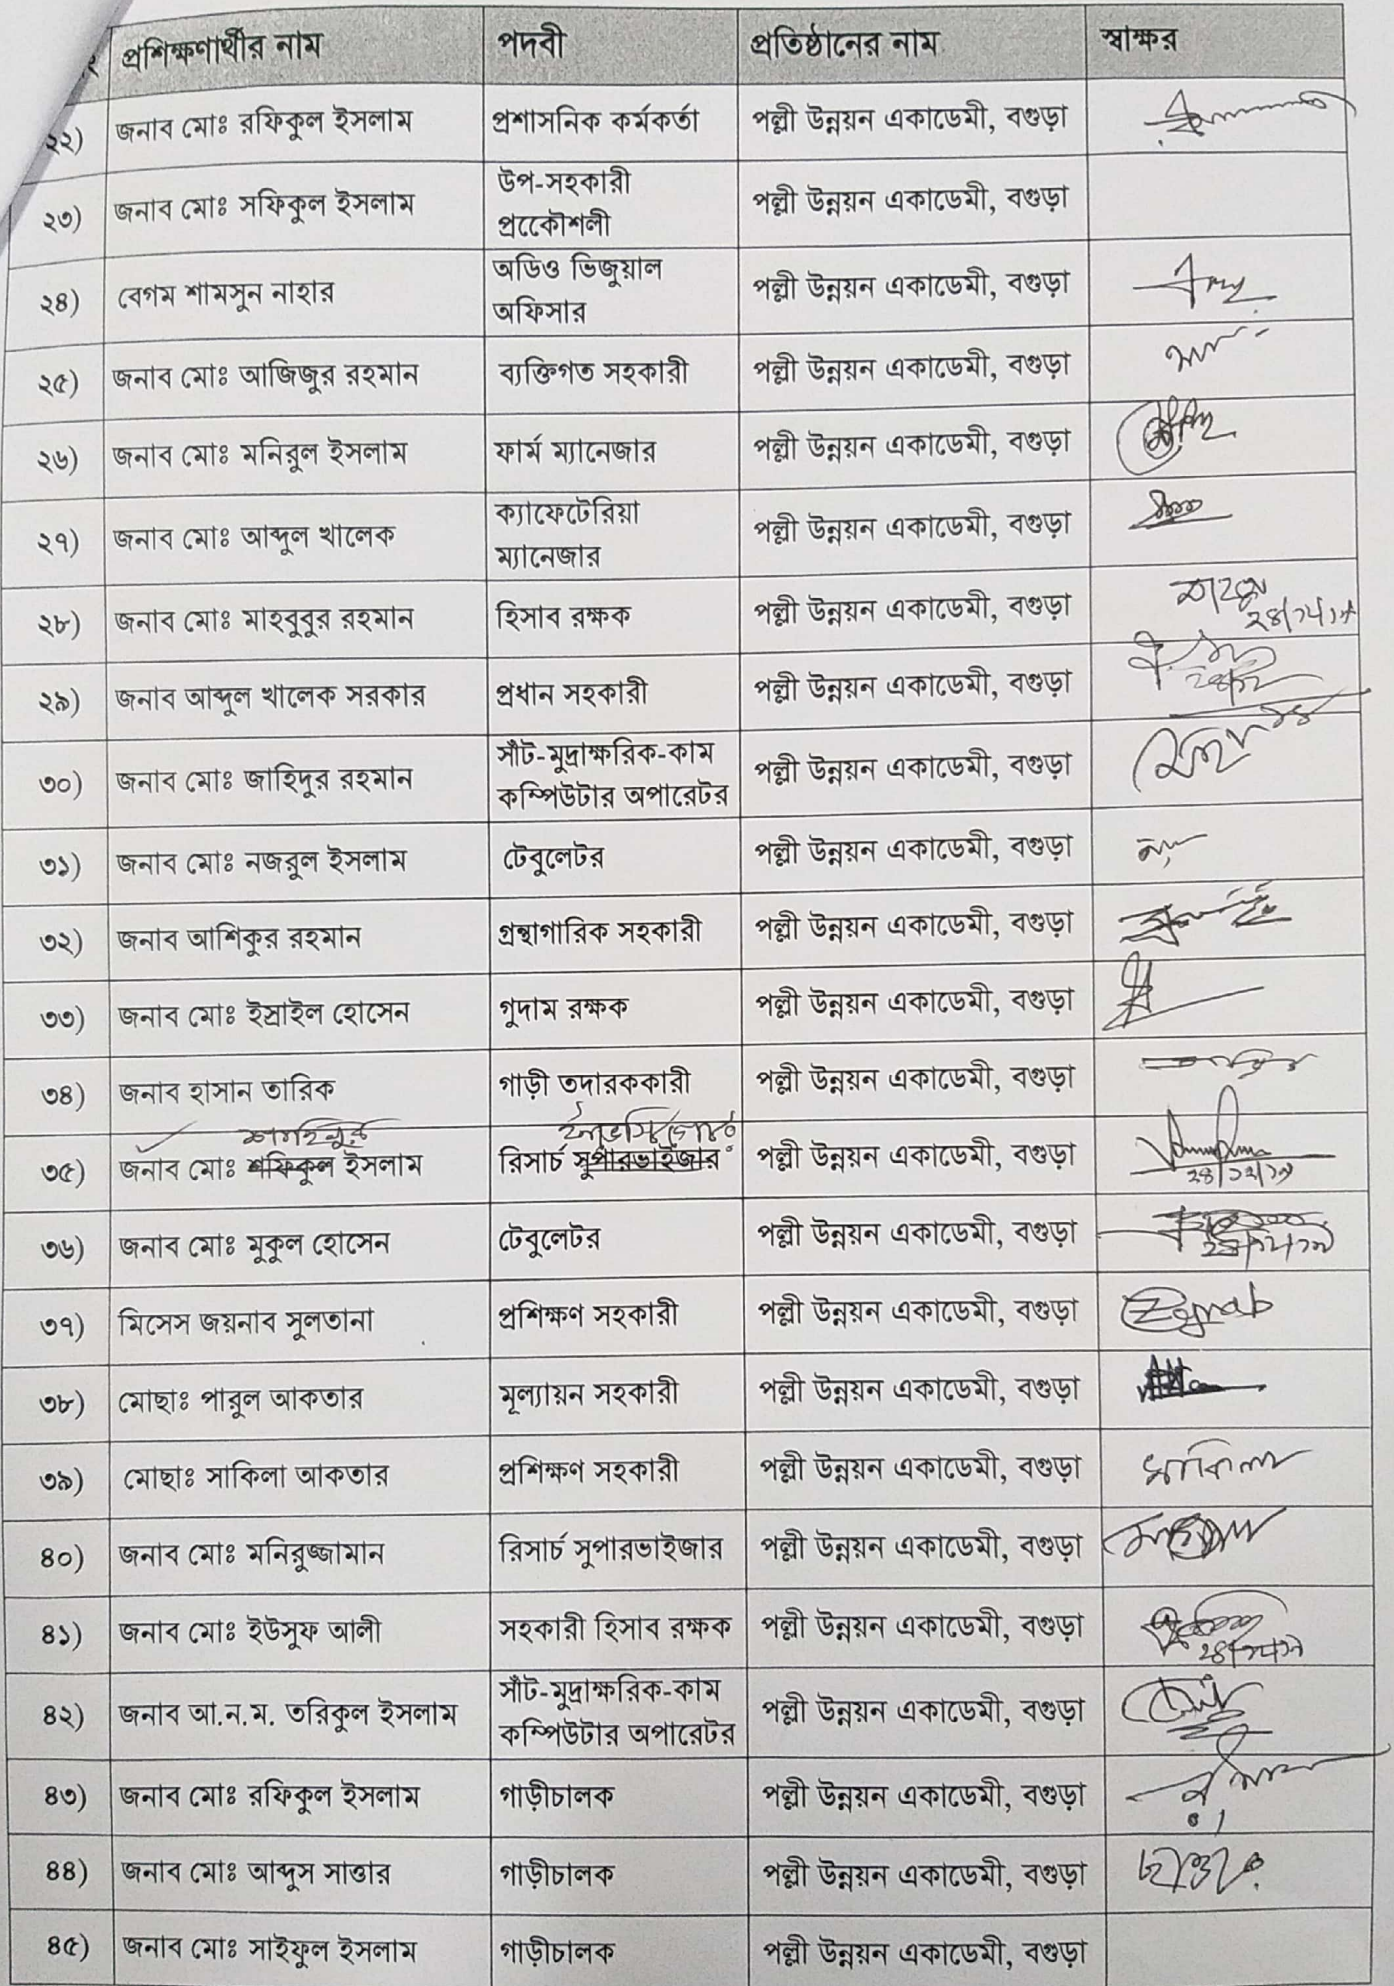 প্রশিক্ষণার্থীর নাম পদবী প্রতিষ্ঠানের নাম স্বাক্ষর
২২) জনাব মোঃ রফিকুল ইসলাম প্রশাসনিক কর্মকর্তা পল্লী উন্নয়ন একাডেমী, বগুড়া
২৩) জনাব মোঃ সফিকুল ইসলাম উপ-সহকারী
প্রকৌশলী পল্লী উন্নয়ন একাডেমী, বগুড়া
২৪) বেগম শামসুন নাহার অডিও ভিজুয়াল
অফিসার পল্লী উন্নয়ন একাডেমী, বগুড়া
২৫) জনাব মোঃ আজিজুর রহমান ব্যক্তিগত সহকারী পল্লী উন্নয়ন একাডেমী, বগুড়া
২৬) জনাব মোঃ মনিরুল ইসলাম ফার্ম ম্যানেজার পল্লী উন্নয়ন একাডেমী, বগুড়া
২৭) জনাব মোঃ আব্দুল খালেক ক্যাফেটেরিয়া
ম্যানেজার পল্লী উন্নয়ন একাডেমী, বগুড়া
২৮) জনাব মোঃ মাহবুবুর রহমান হিসাব রক্ষক পল্লী উন্নয়ন একাডেমী, বগুড়া
২৯) জনাব আব্দুল খালেক সরকার প্রধান সহকারী পল্লী উন্নয়ন একাডেমী, বগুড়া
৩০) জনাব মোঃ জাহিদুর রহমান সাঁট-মুদ্রাক্ষরিক-কাম
কম্পিউটার অপারেটর পল্লী উন্নয়ন একাডেমী, বগুড়া
৩১) জনাব মোঃ নজরুল ইসলাম টেবুলেটর পল্লী উন্নয়ন একাডেমী, বগুড়া
৩২) জনাব আশিকুর রহমান গ্রন্থাগারিক সহকারী পল্লী উন্নয়ন একাডেমী, বগুড়া
৩৩) জনাব মোঃ ইস্রাইল হোসেন গুদাম রক্ষক পল্লী উন্নয়ন একাডেমী, বগুড়া
৩৪) জনাব হাসান তারিক গাড়ী তদারককারী পল্লী উন্নয়ন একাডেমী, বগুড়া
৩৫) জনাব মোঃ শফিকুল ইসলাম রিসার্চ সুপারভাইজার পল্লী উন্নয়ন একাডেমী, বগুড়া
৩৬) জনাব মোঃ মুকুল হোসেন টেবুলেটর পল্লী উন্নয়ন একাডেমী, বগুড়া
৩৭) মিসেস জয়নাব সুলতানা প্রশিক্ষণ সহকারী পল্লী উন্নয়ন একাডেমী, বগুড়া Zaynab
৩৮) মোছাঃ পারুল আকতার মূল্যায়ন সহকারী পল্লী উন্নয়ন একাডেমী, বগুড়া
৩৯) মোছাঃ সাকিলা আকতার প্রশিক্ষণ সহকারী পল্লী উন্নয়ন একাডেমী, বগুড়া সাকিলা
৪০) জনাব মোঃ মনিরুজ্জামান রিসার্চ সুপারভাইজার পল্লী উন্নয়ন একাডেমী, বগুড়া
৪১) জনাব মোঃ ইউসুফ আলী সহকারী হিসাব রক্ষক পল্লী উন্নয়ন একাডেমী, বগুড়া
৪২) জনাব আ.ন.ম. তরিকুল ইসলাম সাঁট-মুদ্রাক্ষরিক-কাম
কম্পিউটার অপারেটর পল্লী উন্নয়ন একাডেমী, বগুড়া
৪৩) জনাব মোঃ রফিকুল ইসলাম গাড়ীচালক পল্লী উন্নয়ন একাডেমী, বগুড়া
৪৪) জনাব মোঃ আব্দুস সাত্তার গাড়ীচালক পল্লী উন্নয়ন একাডেমী, বগুড়া
৪৫) জনাব মোঃ সাইফুল ইসলাম গাড়ীচালক পল্লী উন্নয়ন একাডেমী, বগুড়া